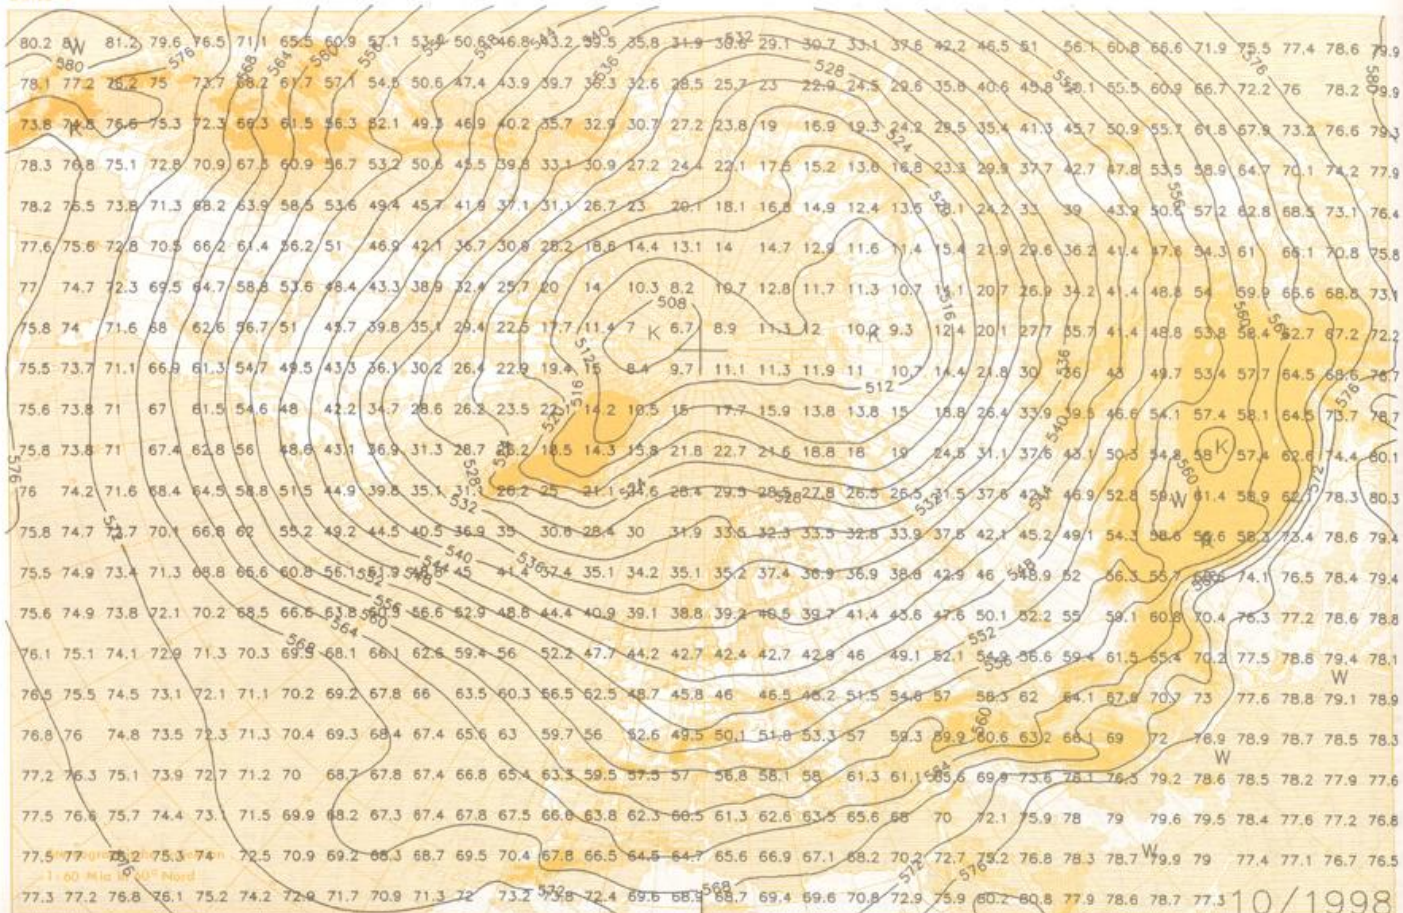 80.2 81.2 79.6 76.5 71.1 65.5 60.9 57.1 50.6 46.8 43.2 39.5 35.8 31.9 30.6 29.1 30.7 33.1 37.6 42.2 46.5 51 56.1 60.8 66.6 71.9 75.5 77.4 78.6 79.9
W
580 576 568 564 560 548 544 540 536 532 528 576 580
78.1 77.2 76.2 75 73.7 68.2 61.7 57.1 54.5 50.6 47.4 43.9 39.7 36.3 32.6 28.5 25.7 23 22.9 24.5 29.6 35.6 40.6 45.8 55.5 60.9 66.7 72.2 76 78.2 79.9
73.8 74.8 76.6 75.3 72.3 66.3 61.5 56.3 52.1 49.3 46.9 40.2 35.7 32.9 30.7 27.2 23.8 19 16.9 19.3 24.2 29.5 35.4 41.3 45.7 50.9 55.7 61.8 67.9 73.2 76.6 79.3
524
78.3 76.8 75.1 72.8 70.9 67.5 60.9 56.7 53.2 50.6 45.5 39.8 33.1 30.9 27.2 24.4 22.1 17.6 15.2 13.6 16.8 23.3 29.9 37.7 42.7 47.8 53.5 58.9 64.7 70.1 74.2 77.9
556
78.2 76.5 73.8 71.3 68.2 63.9 58.5 53.6 49.4 45.7 41.9 37.1 31.1 26.7 23 20.1 18.1 16.8 14.9 12.4 13.6 18.1 24.2 33 39 43.9 50.6 57.2 62.8 68.5 73.1 76.4
77.6 75.6 72.8 70.5 66.2 61.4 56.2 51 46.9 42.1 36.7 30.9 28.2 18.6 14.4 13.1 14 14.7 12.9 11.6 11.4 15.4 21.9 29.6 36.2 41.4 47.6 54.3 61 66.1 70.8 75.8
77 74.7 72.3 69.5 64.7 58.8 53.6 48.4 43.3 38.9 32.4 25.7 20 14 10.3 8.2 10.7 12.8 11.7 11.3 10.7 14.1 20.7 26.9 34.2 41.4 48.8 54 59.9 66.6 68.8 73.1
508 516 560
75.8 74 71.6 68 62.6 56.7 51 45.7 39.8 35.1 29.4 22.5 17.7 11.4 7 K 6.7 8.9 11.3 12 9.3 12.4 20.1 27.7 35.7 41.4 48.8 53.8 58.4 62.7 67.2 72.2
75.5 73.7 71.1 66.9 61.3 54.7 49.5 43.3 36.1 30.2 26.4 22.9 19.4 15 8.4 9.7 11.1 11.3 11.9 11 10.7 14.4 21.8 30 36 43 49.7 53.4 57.7 64.5 68.6
512 516 512 536 576
75.6 73.8 71 67 61.5 54.6 48 42.2 34.7 28.6 26.2 23.5 22.1 14.2 10.5 15 17.7 15.9 13.8 13.8 15 18.8 26.4 33.9 39.5 46.6 54.1 57.4 58.1 64.5 73.7 78.7
540
75.8 73.8 71 67.4 62.8 56 48.6 43.1 36.9 31.3 28.7 26.2 18.5 14.3 15.8 21.8 22.7 21.6 18.8 18 19 24.5 31.1 37.6 43.1 50.3 54.8 58 K 57.4 62.6 74.4 80.1
576 528 560 572
76 74.2 71.6 68.4 64.5 58.8 51.5 44.9 39.8 35.1 31.1 26.2 25 21.1 24.6 28.4 29.5 27.8 26.5 26.5 31.5 37.6 46.9 52.8 W 61.4 58.9 78.3 80.3
532 524 528 532 544
75.8 74.7 70.1 66.8 62 55.2 49.2 44.5 40.5 36.9 35 30.6 28.4 30 31.9 33.5 32.3 33.5 32.8 33.9 37.6 42.1 45.2 49.1 54.3 58.6 58.3 73.4 78.6 79.4
540 536 548
75.5 74.9 73.4 71.3 68.8 65.6 60.8 56.1 45 41.4 37.4 35.1 34.2 35.1 35.2 37.4 36.9 36.9 38.8 42.9 46 48.9 52 56.3 55.7 74.1 76.5 78.4 79.4
75.6 74.9 73.8 72.1 70.2 68.5 66.6 63.8 60.3 56.6 52.9 48.8 44.4 40.9 39.1 38.8 39.2 40.5 39.7 41.4 43.6 47.6 50.1 52.2 55 59.1 60.8 70.4 76.3 77.2 78.6 78.8
564 560 568 552
76.1 75.1 74.1 72.9 71.3 70.3 69.5 68.1 66.1 62.6 59.4 56 52.2 47.7 44.2 42.7 42.4 42.7 42.9 46 49.1 52.1 54.9 56.6 59.4 61.5 65.4 70.2 77.5 78.8 79.4 78.1
556 W
76.5 75.5 74.5 73.1 72.1 71.1 70.2 69.2 67.8 66 63.5 60.3 56.5 52.5 48.7 45.8 46 46.5 48.2 51.5 54.6 57 58.3 62 64.1 67.8 70.7 73 77.6 78.8 79.1 78.9
560
76.8 76 74.8 73.5 72.3 71.3 70.4 69.3 68.4 67.4 65.6 63 59.7 56 52.6 49.5 50.1 51.8 53.3 57 59.3 59.9 60.6 63.2 66.1 69 72 76.9 78.9 78.7 78.5 78.3
W
77.2 76.3 75.1 73.9 72.7 71.2 70 68.7 67.8 67.4 66.8 65.4 63.3 59.5 57.5 57 56.8 58.1 58 61.3 61.1 65.6 69.9 73.6 76.1 76.5 79.2 78.6 78.5 78.2 77.9 77.6
77.5 76.6 75.7 74.4 73.1 71.5 69.9 68.2 67.3 67.4 67.8 67.5 66.6 63.8 62.3 60.5 61.3 62.6 63.5 65.6 68 70 72.1 75.9 78 79 79.6 79.5 78.4 77.6 77.2 76.8
W
77.5 77 76.2 75.3 74 72.5 70.9 69.2 68.3 68.7 69.5 70.4 67.8 66.5 64.5 64.7 65.6 66.9 67.1 68.2 70.2 72.7 75.2 76.8 78.3 78.7 79.9 79 77.4 77.1 76.7 76.5
576 572 568 572 576
77.3 77.2 76.8 76.1 75.2 74.2 72.9 71.7 70.9 71.3 72 73.2 73.8 72.4 69.6 68.9 68.7 69.4 69.6 70.8 72.9 75.9 80.2 80.8 77.9 78.6 78.7 77.3
10/1998